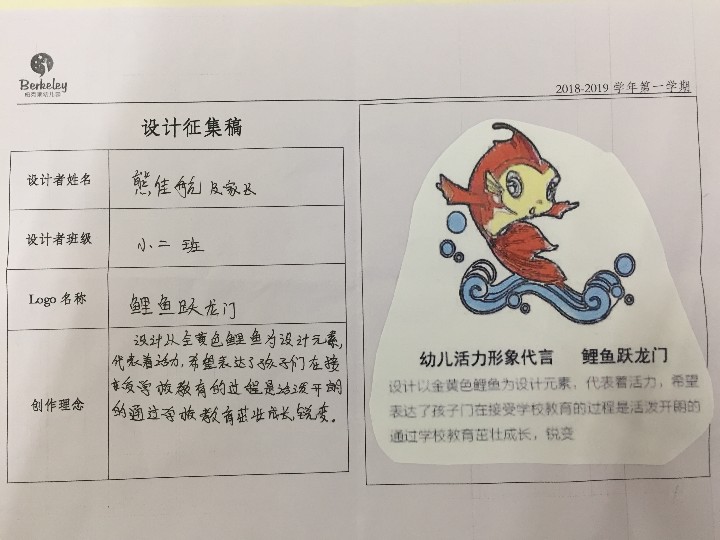 Berkeley
2018-2019 学年第一学期
设计征集稿
设计者姓名
熊佳航及家长
设计者班级
小二班
Logo 名称
鲤鱼跃龙门
创作理念
设计以金黄色鲤鱼为设计元素,
代表着活力,希望表达了孩子们在接
受学校教育的过程是活泼开朗
的通过学校教育茁壮成长,锐变。
幼儿活力形象代言 鲤鱼跃龙门
设计以金黄色鲤鱼为设计元素，代表着活力，希望
表达了孩子门在接受学校教育的过程是活泼开朗的
通过学校教育茁壮成长，锐变